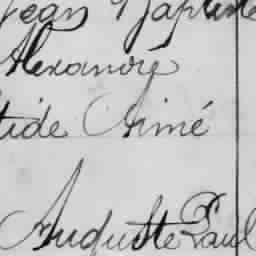 Jean Baptiste
Alexandre
tide Aimé
Auguste Paul